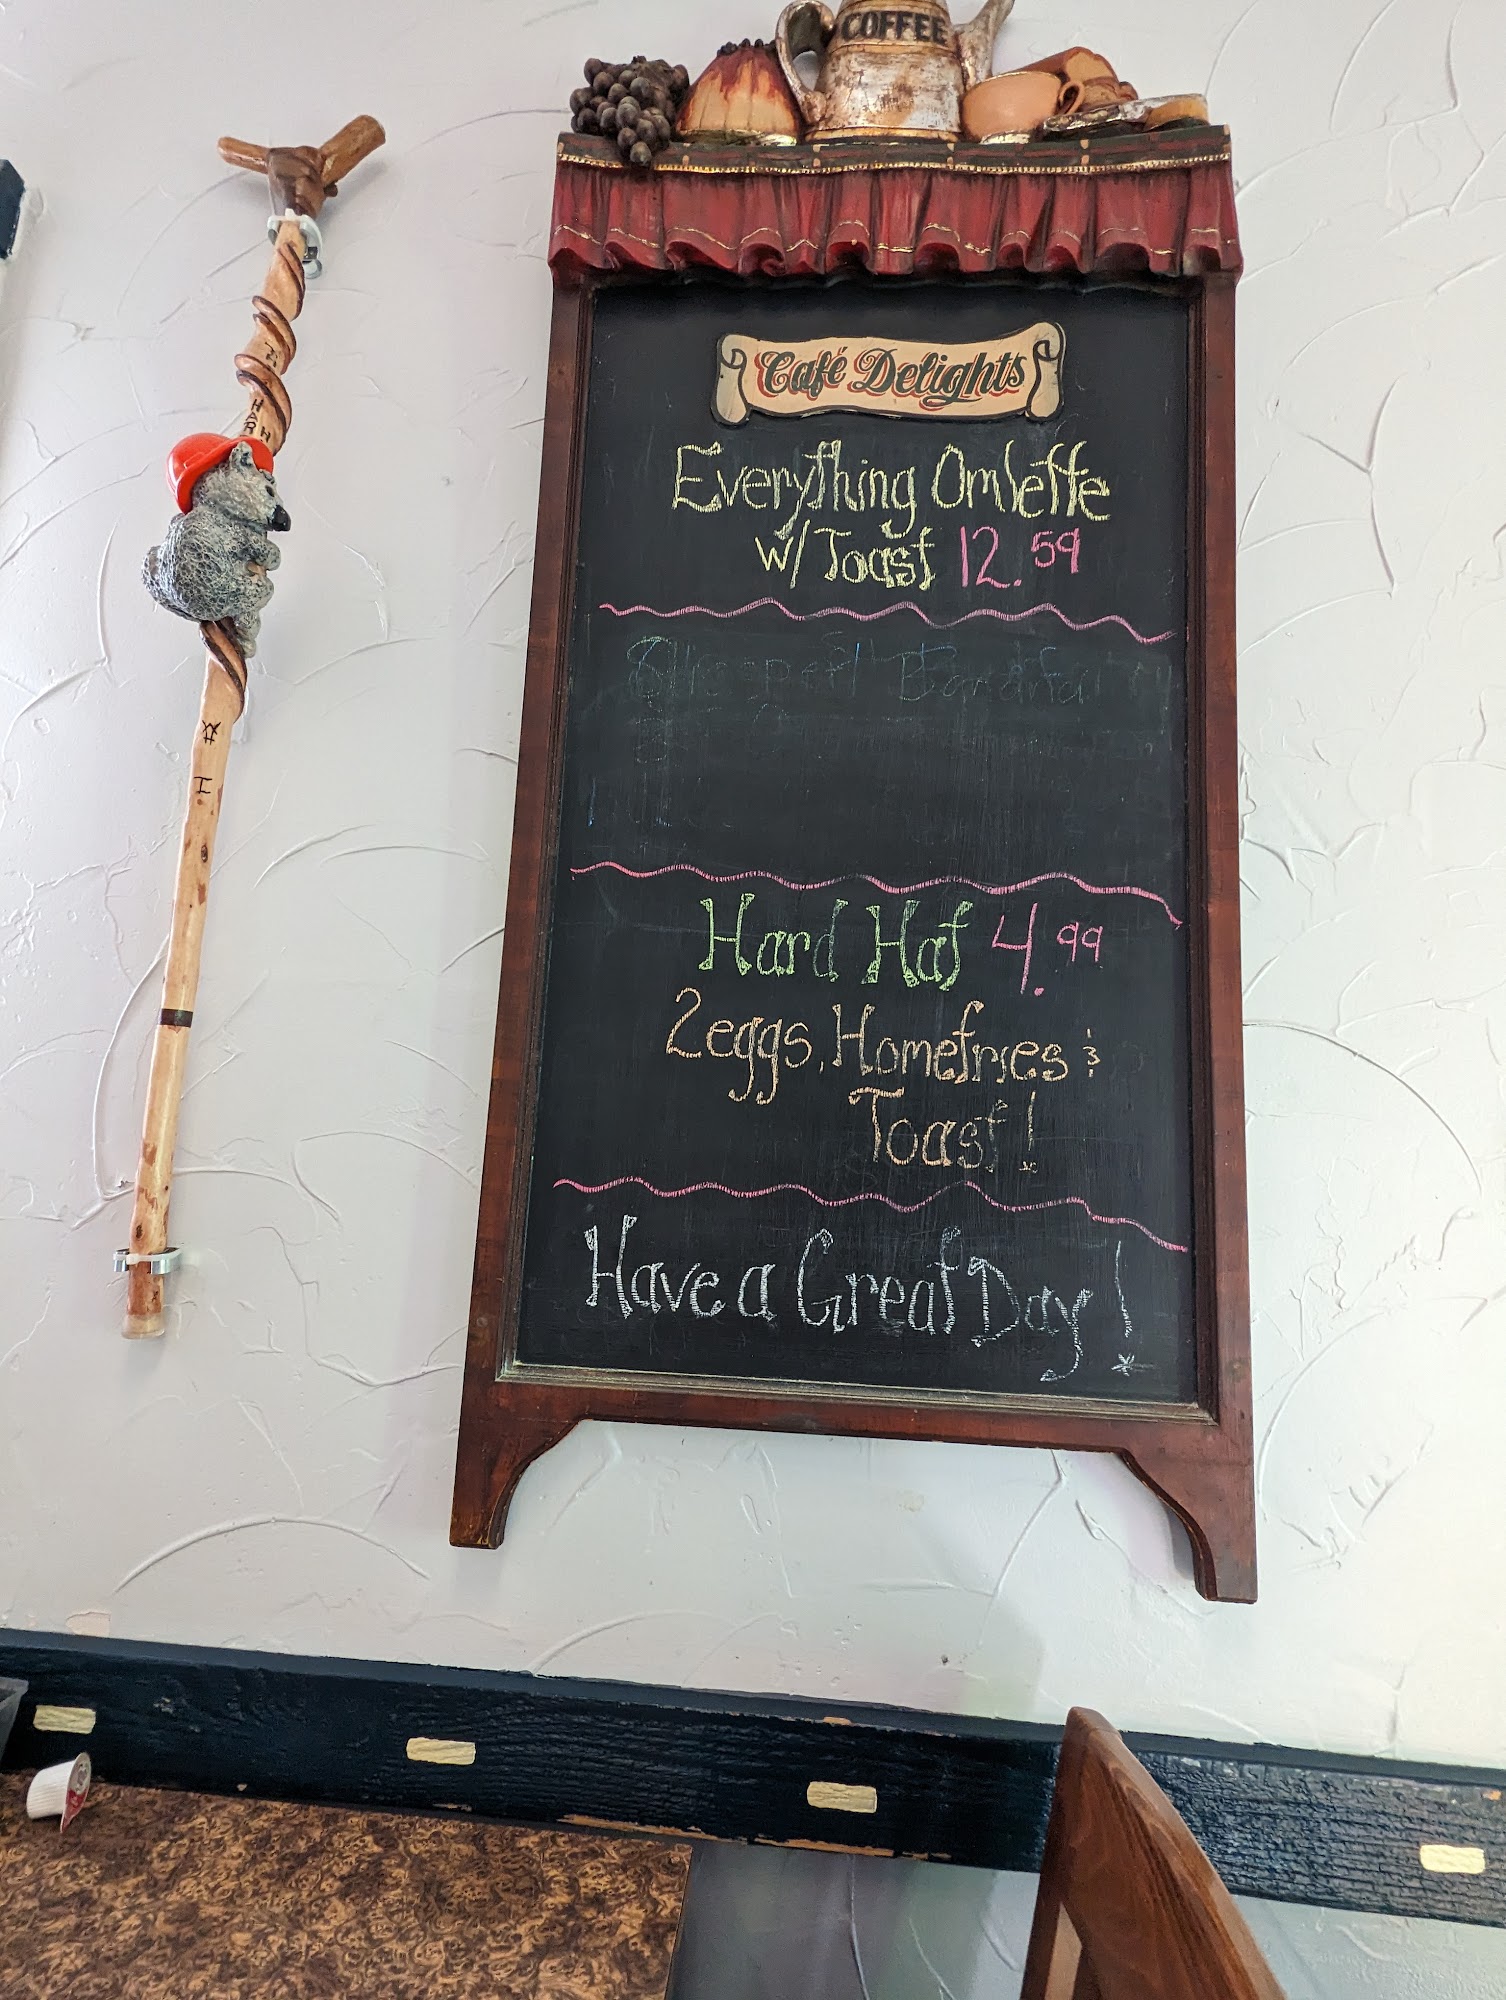 COFFEE
Café Delights
Everything Omlette
w/ Toast 12.59
Hard Hat 4.99
2 eggs, Homefries &
Toast!
Have a Great Day!
HARD
H
I